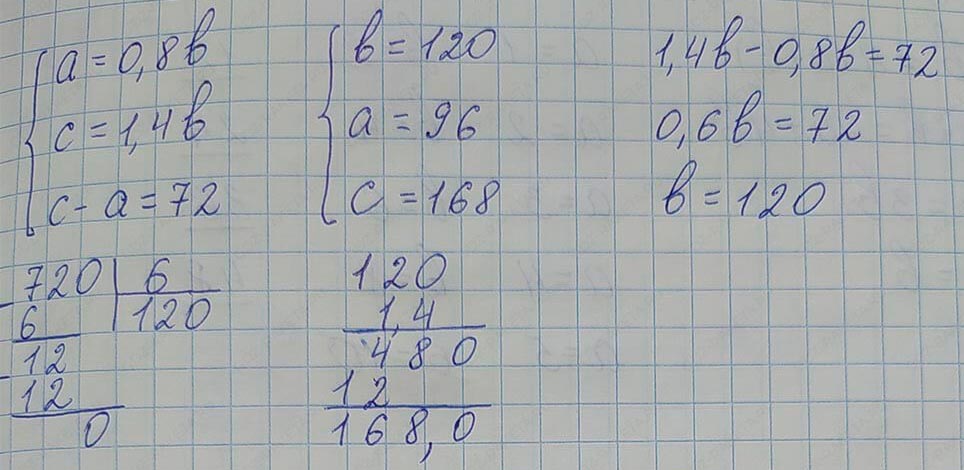 a = 0,8b
c = 1,4b
c - a = 72
b = 120
a = 96
c = 168
1,4b - 0,8b = 72
0,6b = 72
b = 120
720 | 6
6 | 120
12
12
0
120
1,4
480
12
168,0